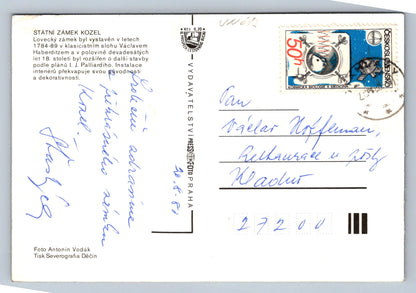 STÁTNÍ ZÁMEK KOZEL
Lovecký zámek byl vystavěn v letech
1784-89 v klasicistním slohu Václavem
Haberditzem a v polovině devadesátých
let 18. století byl rozšířen o další stavby
podle plánů I. J. Palliardiho. Instalace
interiérů překvapuje svou původností
a dekorativností.
Srdečně zdravíme
z překrásného zámku
Kozel.
20. 8. 81
Foto Antonín Vodák
Tisk Severografia Děčín
VYDAVATELSTVÍ PRESSFOTO PRAHA
ČESKOSLOVENSKO
50h
KOSMICKÁ BIOLOGIE A MEDICÍNA
Pan
Václav Hoffman,
Kladno
27200